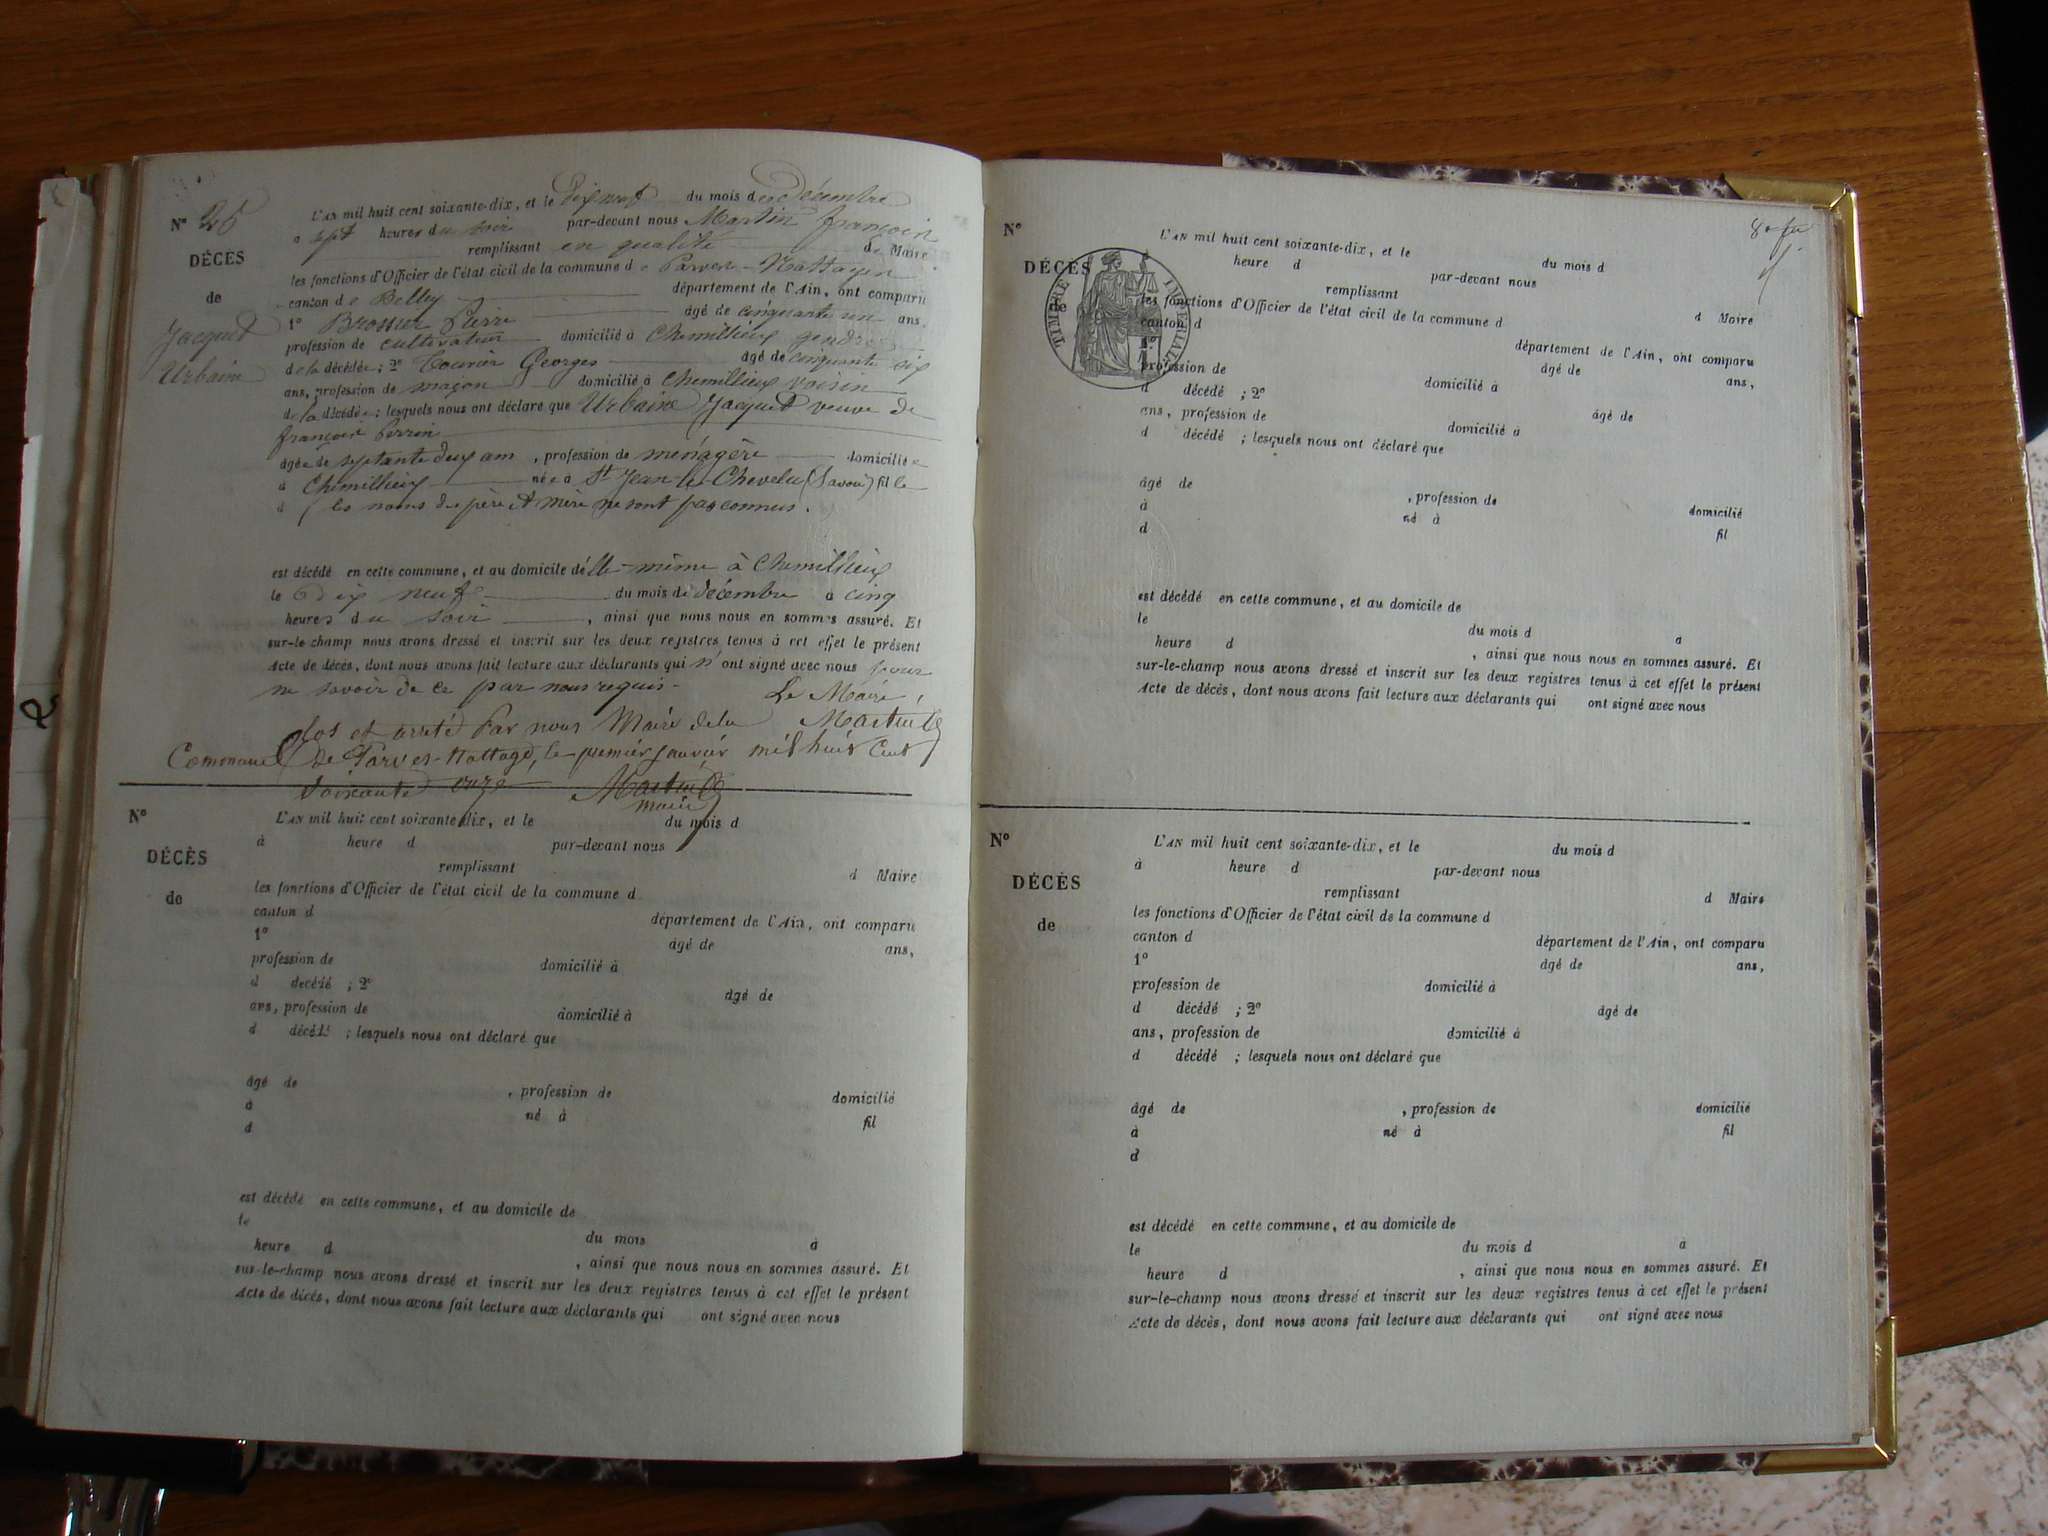 N° 25
DÉCÈS
de
Jacquet
Urbaine
L'AN mil huit cent soixante-dix, et le Dix neuf du mois de Décembre
à sept heures du soir par-devant nous Martin françois
remplissant en qualité de Maire
les fonctions d'Officier de l'état civil de la commune de Parves-Nattages
canton de Belley département de l'Ain, ont comparu
1° Brossier Pierre âgé de cinquante un ans,
profession de cultivateur domicilié à Chemillieux gendre
de la décédée ; 2e Tournier Georges âgé de cinquante six
ans, profession de maçon domicilié à Chemillieux voisin
de la décédée ; lesquels nous ont déclaré que Urbaine Jacquet veuve de
françois Perrin
âgée de septante deux ans, profession de ménagère domiciliée
à Chemillieux née à St Jean le Chevelu (Savoie) fille
d ( les noms des père et mère ne sont pas connus.
est décédé en cette commune, et au domicile d'elle-même à Chemillieux
le dix neuf du mois de décembre à cinq
heures du soir, ainsi que nous nous en sommes assuré. Et
sur-le-champ nous avons dressé et inscrit sur les deux registres tenus à cet effet le présent
Acte de décès, dont nous avons fait lecture aux déclarants qui n'ont signé avec nous pour
ne savoir de ce par nous requis.
Le Maire,
Clos et arrêté Par nous Maire de la Martin
Commune de Parves-Nattage, le premier janvier mil huit Cent
Soixante onze Martin
maire
N°
DÉCÈS
de
L'AN mil huit cent soixante-dix, et le du mois d
à heure d par-devant nous
remplissant d Maire
les fonctions d'Officier de l'état civil de la commune d
canton d département de l'Ain, ont comparu
1° âgé de ans,
profession de domicilié à
d décédé ; 2e âgé de
ans, profession de domicilié à
d décédé ; lesquels nous ont déclaré que
âgé de , profession de domicilié
à né à fil
d
est décédé en cette commune, et au domicile de
le du mois à
heure d , ainsi que nous nous en sommes assuré. Et
sur-le-champ nous avons dressé et inscrit sur les deux registres tenus à cet effet le présent
Acte de décès, dont nous avons fait lecture aux déclarants qui ont signé avec nous
N°
DÉCÈS
de
TIMBRE IMPÉRIAL
L'AN mil huit cent soixante-dix, et le du mois d
heure d par-devant nous
remplissant d Maire
les fonctions d'Officier de l'état civil de la commune d
canton d département de l'Ain, ont comparu
1° âgé de ans,
profession de domicilié à
d décédé ; 2e âgé de
ans, profession de domicilié à
d décédé ; lesquels nous ont déclaré que
âgé de , profession de domicilié
à né à fil
d
est décédé en cette commune, et au domicile de
le du mois d à
heure d , ainsi que nous nous en sommes assuré. Et
sur-le-champ nous avons dressé et inscrit sur les deux registres tenus à cet effet le présent
Acte de décès, dont nous avons fait lecture aux déclarants qui ont signé avec nous
N°
DÉCÈS
de
L'AN mil huit cent soixante-dix, et le du mois d
à heure d par-devant nous
remplissant d Maire
les fonctions d'Officier de l'état civil de la commune d
canton d département de l'Ain, ont comparu
1° âgé de ans,
profession de domicilié à
d décédé ; 2e âgé de
ans, profession de domicilié à
d décédé ; lesquels nous ont déclaré que
âgé de , profession de domicilié
à né à fil
d
est décédé en cette commune, et au domicile de
le du mois d à
heure d , ainsi que nous nous en sommes assuré. Et
sur-le-champ nous avons dressé et inscrit sur les deux registres tenus à cet effet le présent
Acte de décès, dont nous avons fait lecture aux déclarants qui ont signé avec nous